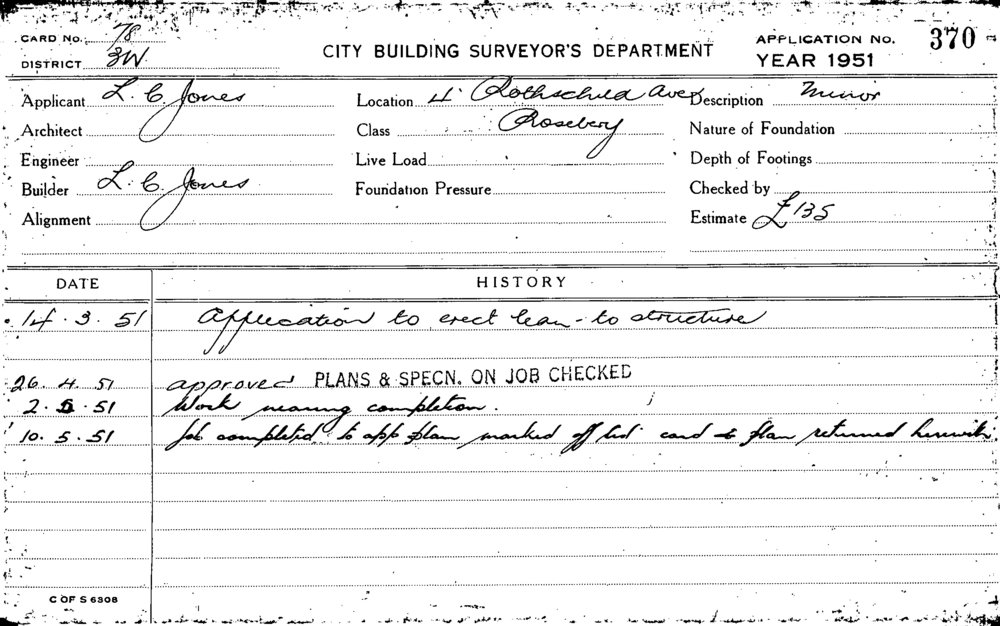 CARD No. 78
DISTRICT 3W
CITY BUILDING SURVEYOR'S DEPARTMENT
APPLICATION No. 370
YEAR 1951
Applicant L. C. Jones
Location 4 Rothschild Ave
Description Minor
Architect
Class Rosebery
Nature of Foundation
Engineer
Live Load
Depth of Footings
Builder L. C. Jones
Foundation Pressure
Checked by
Alignment
Estimate £135
DATE HISTORY
14.3.51 Application to erect lean-to structure
26.4.51 approved PLANS & SPECN. ON JOB CHECKED
2.5.51 Work nearing completion.
10.5.51 Job completed to app plan marked off card & plan returned herewith.
C OF S 6308